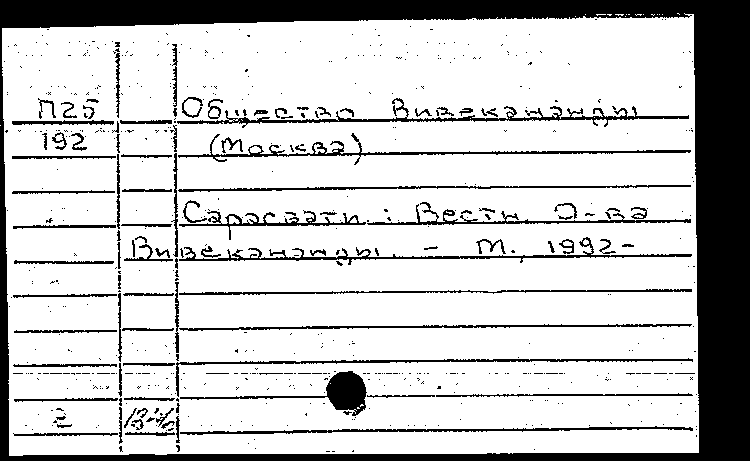 П25 Общество Вивекананды
192 (Москва)
Сарасвати : Вестн. О-ва
Вивекананды. - М., 1992-
2